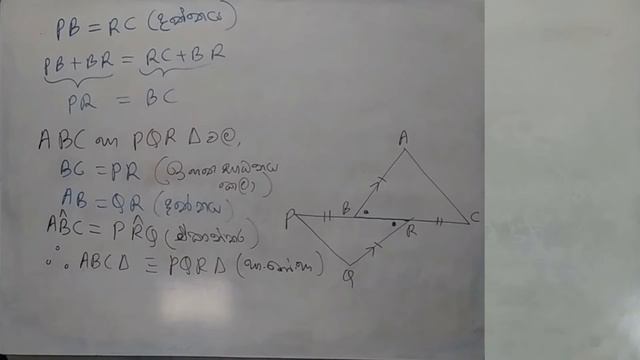 PB = RC (දත්තය)
PB + BR = RC + BR
PR = BC
ABC හා PQR Δ වල,
BC = PR (ඉහත සාධනය කළා)
AB = QR (දත්තය)
AB̂C = PR̂Q (ඒකාන්තර)
∴ ABC Δ ≡ PQR Δ (පා.කෝ.පා)
A
P B R C
Q